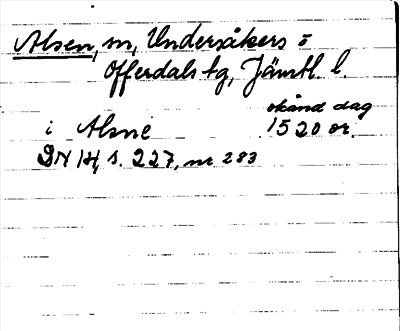 Alsen, sn, Undersåkers o
Offerdals tg, Jämtl. l
okänd dag
i Alsne 1520 or.
DN 14, s. 227, nr 283